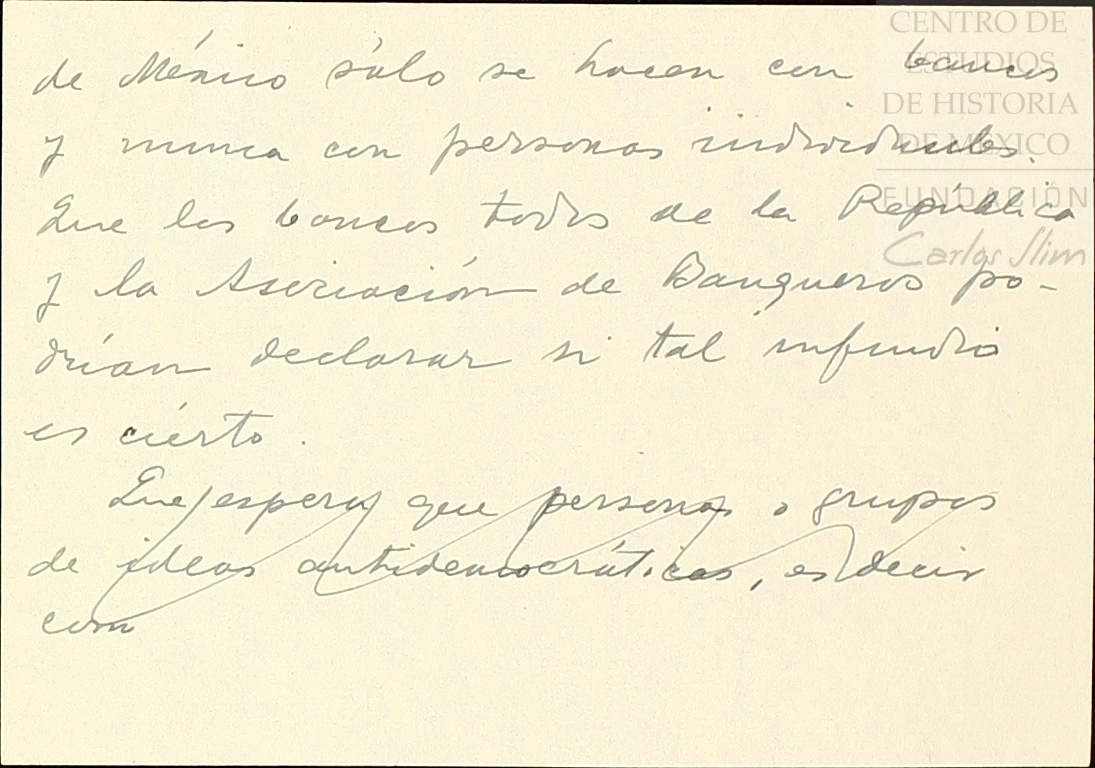 de México sólo se hacen con bancos
y nunca con personas individuales.
Que los bancos todos de la República
y la Asociación de Banqueros po-
drían declarar si tal infundio
es cierto.
Que espera que personas o grupos
de ideas antidemocráticas, es decir
com
CENTRO DE
ESTUDIOS
DE HISTORIA
DE MÉXICO
FUNDACIÓN
Carlos Slim